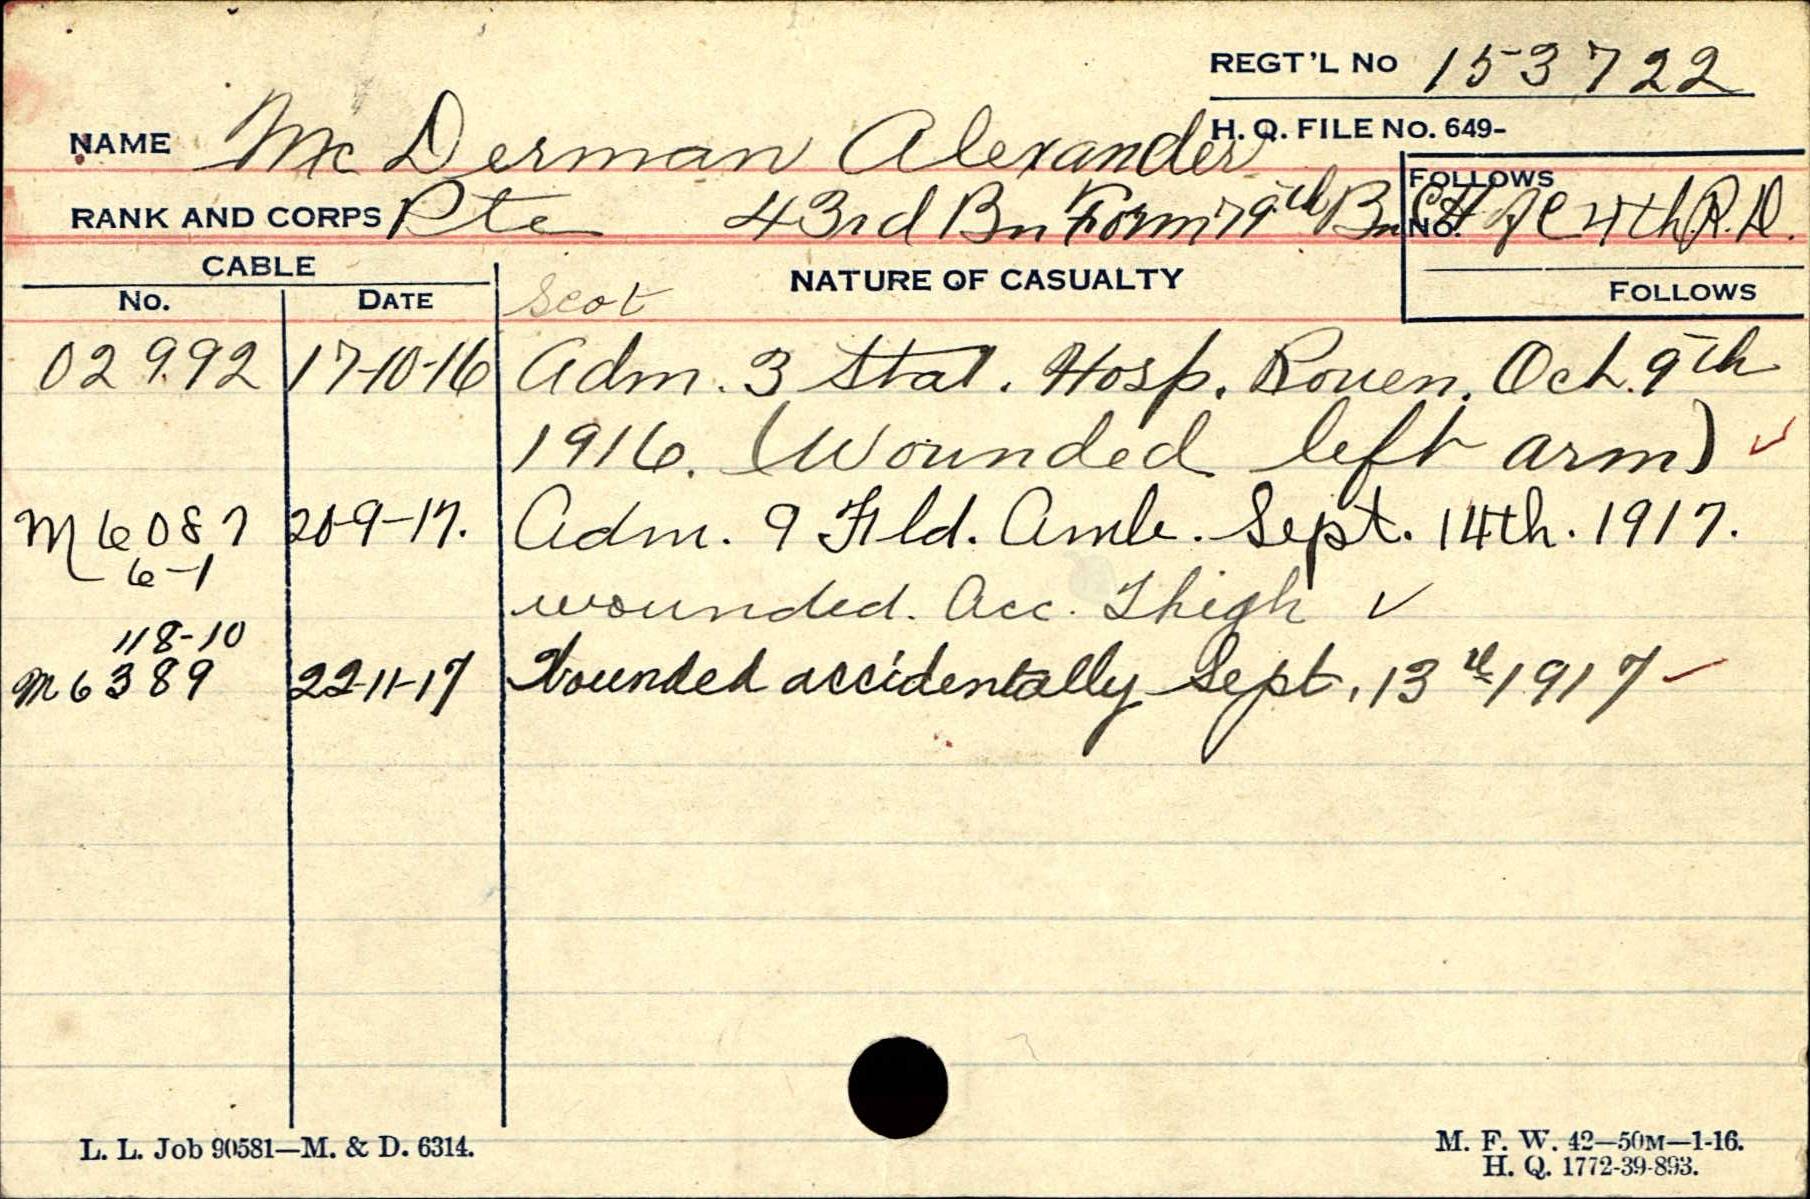 REGT'L No 153722
NAME Mc Derman Alexander
H. Q. FILE No. 649-
FOLLOWS
RANK AND CORPS Pte 43rd Bn Form 79th Bn C H of C 4th R.D.
No.
CABLE
NATURE OF CASUALTY
FOLLOWS
No. DATE Scot
02992 17-10-16 Adm. 3 Stat. Hosp. Rouen. Oct. 9th
1916. (Wounded left arm) ✓
M6087 20-9-17. Adm. 9 Fld. Amb. Sept. 14th. 1917.
6-1 wounded. Acc. Thigh ✓
118-10
M6389 22-11-17 Wounded accidentally Sept. 13th 1917
L. L. Job 90581—M. & D. 6314.
M. F. W. 42—50M—1-16.
H. Q. 1772-39-893.